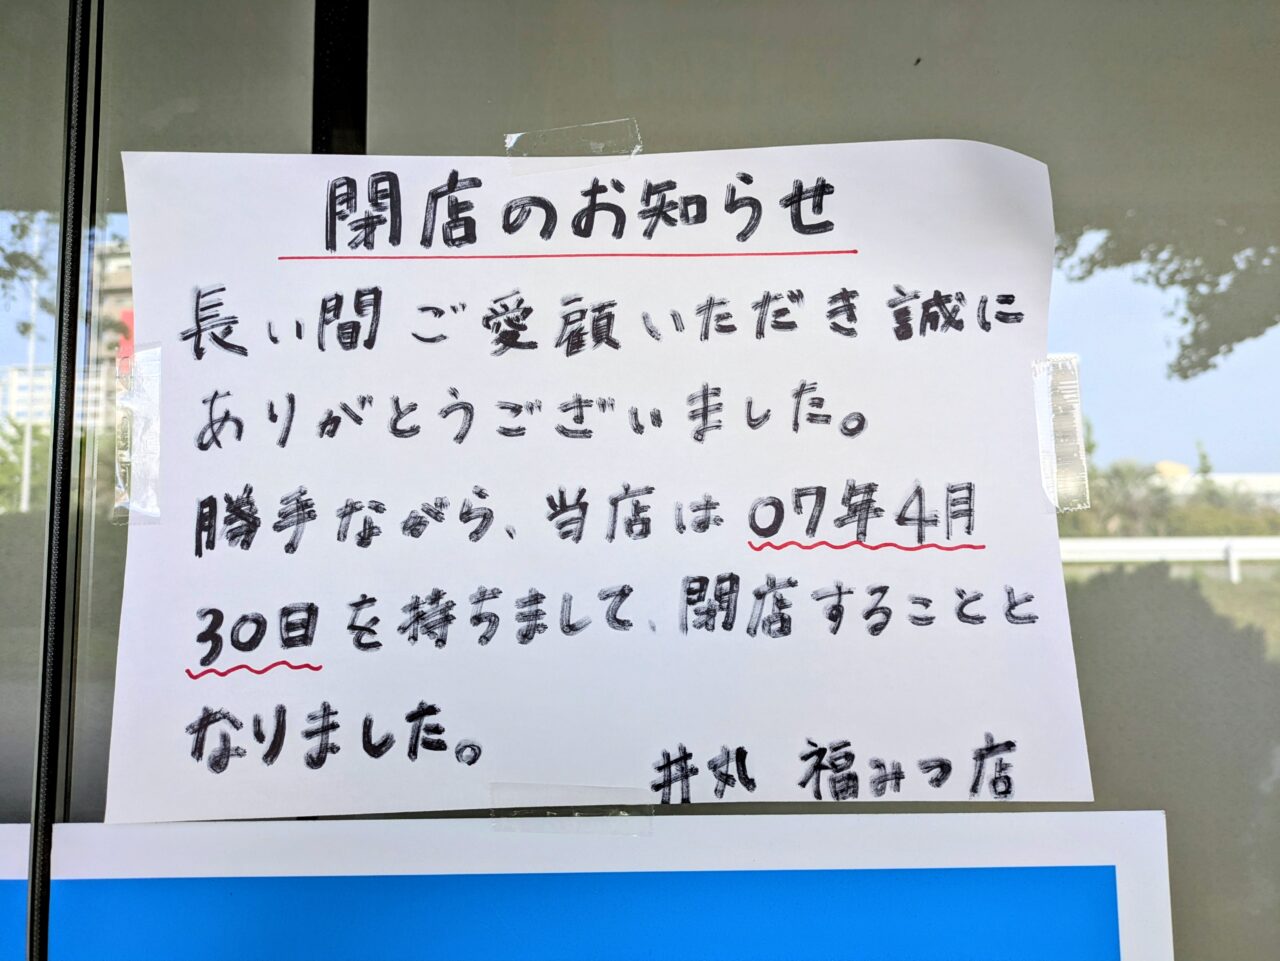 閉店のお知らせ
長い間ご愛顧いただき誠に
ありがとうございました。
勝手ながら、当店は07年4月
30日を持ちまして、閉店することと
なりました。
丼丸 福みつ店